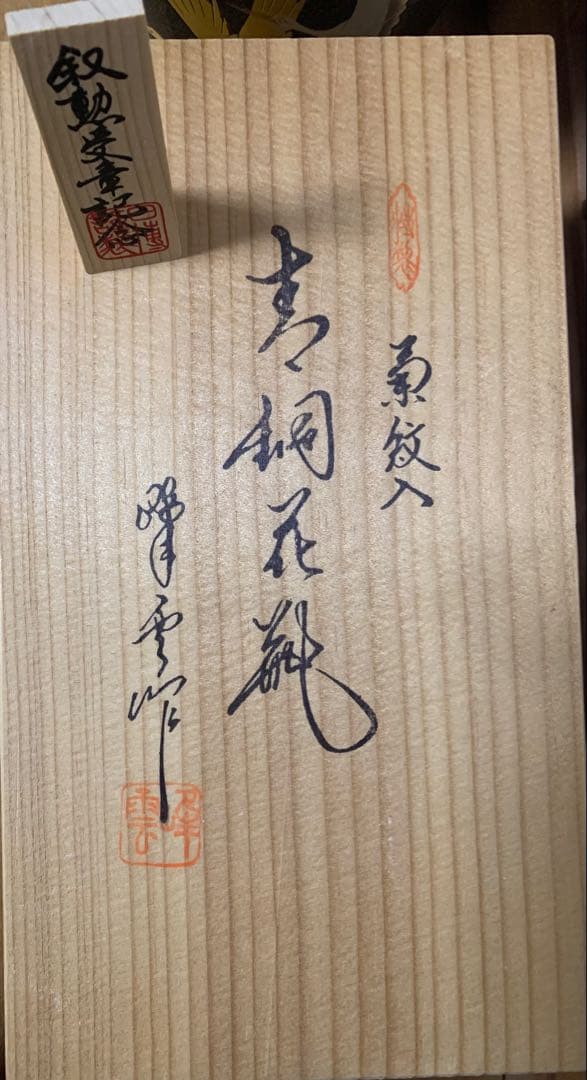 叙勲受章記念
菊紋入
青銅花瓶
峰雲作
峰雲